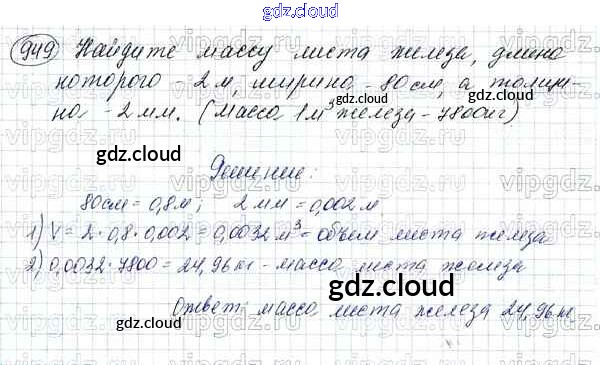 gdz.cloud
949 Найдите массу листа железа, длина
которого - 2 м, ширина - 80 см, а толщи-
на - 2 мм. (Масса 1 м³ железа - 7800 кг)
gdz.cloud
gdz.cloud
gdz.cloud
Решение:
gdz.cloud
80 см = 0,8 м; 2 мм = 0,002 м
1) V = 2 · 0,8 · 0,002 = 0,0032 м³ - объем листа железа
2) 0,0032 · 7800 = 24,96 кг - масса листа железа
gdz.cloud
Ответ: масса листа железа 24,96 кг
gdz.cloud